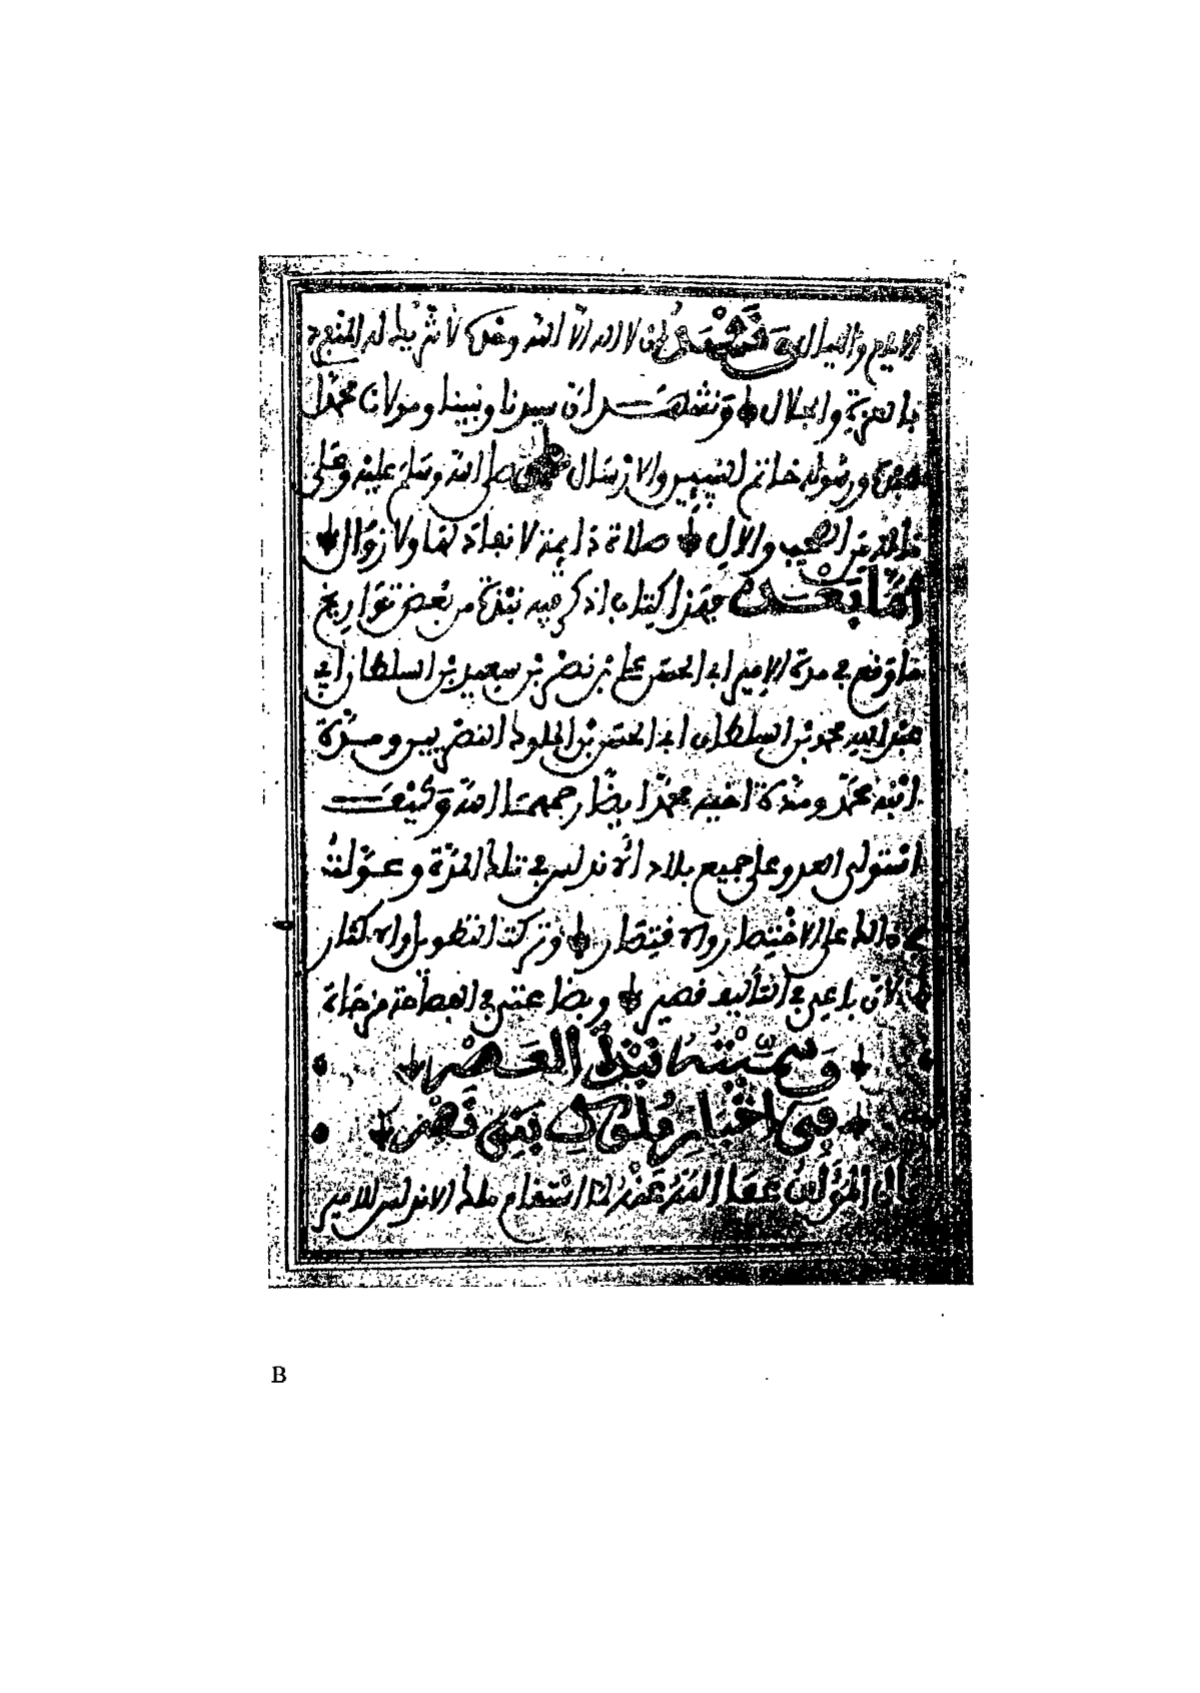 الايام والليال ونشهد ان لا اله الا الله وحده لا شريك له المنفرد
بالعزة والجلال ونشهد ان سيدنا ونبينا ومولانا محمدا
عبده ورسوله خاتم النبيين والارسال صلى الله وسلم عليه وعلى
الصحب والال صلاة دايمة لا نفاد لها ولا زوال
أما بعد فهذا كتاب اذكر فيه نبذة من بعض تواريخ
ما وقع في مدة الامير ابي الحسن علي بن نصر بن سعد بن السلطان ابي
عبد الله محمد بن السلطان ابي الحسن بن الملوك النصريين ومدة
ابنه محمد ومدة اخيه محمد ايضا رحمهم الله وكيف
استولى العدو على جميع بلاد الاندلس في تلك المدة وعولت
في ذلك على الاختصار والاقتصار وتركت التطويل والاكثار
لان باعي في التأليف قصير وبضاعتي في الفصاحة مزجاة
وسميته نبذة العصر
في اخبار ملوك بني نصر
قال المؤلف عفا الله عنه لما استقام ملك الاندلس للامير
B